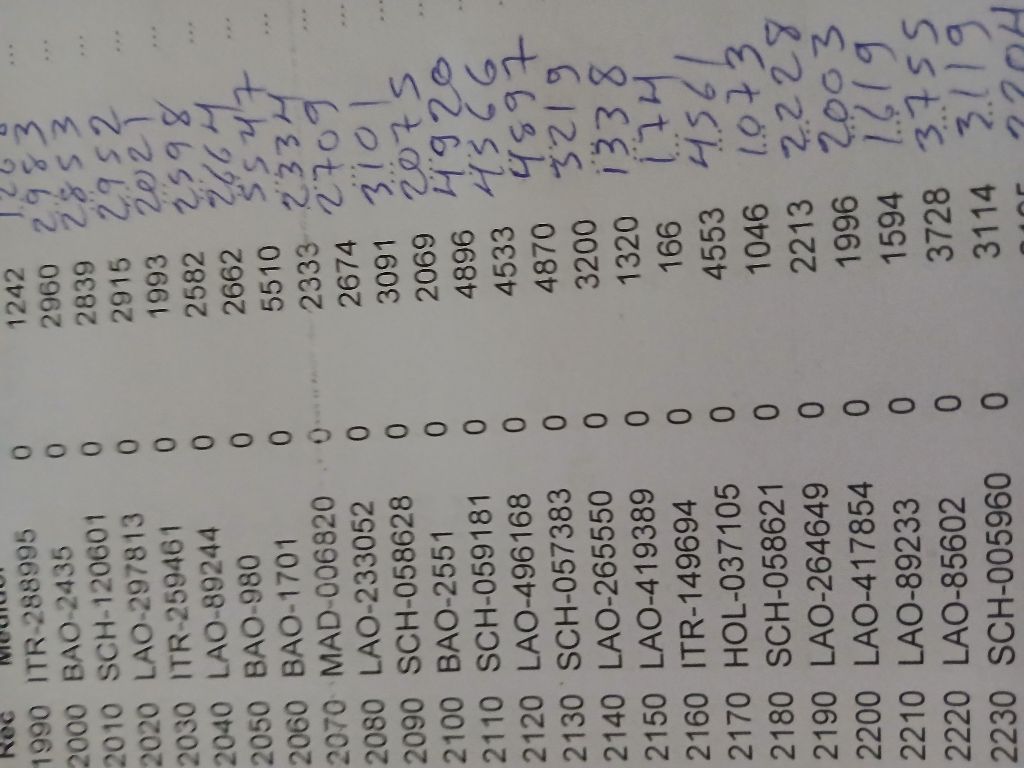 Rec
1990 ITR-288995 0 1242
2000 BAO-2435 0 2960 2983 ...
2010 SCH-120601 0 2839 2853 ...
2020 LAO-297813 0 2915 2952 ...
2030 ITR-259461 0 1993 2021 ...
2040 LAO-89244 0 2582 2598 ...
2050 BAO-980 0 2662 2664 ...
2060 BAO-1701 0 5510 5547 ...
2070 MAD-006820 0 2333 2334 ...
2080 LAO-233052 0 2674 2709 ...
2090 SCH-058628 0 3091 3101
2100 BAO-2551 0 2069 2075
2110 SCH-059181 0 4896 4920
2120 LAO-496168 0 4533 4566
2130 SCH-057383 0 4870 4897
2140 LAO-265550 0 3200 3219
2150 LAO-419389 0 1320 1338
2160 ITR-149694 0 166 174
2170 HOL-037105 0 4553 4561
2180 SCH-058621 0 1046 1073
2190 LAO-264649 0 2213 2228
2200 LAO-417854 0 1996 2003
2210 LAO-89233 0 1594 1619
2220 LAO-85602 0 3728 3755
2230 SCH-005960 0 3114 3119